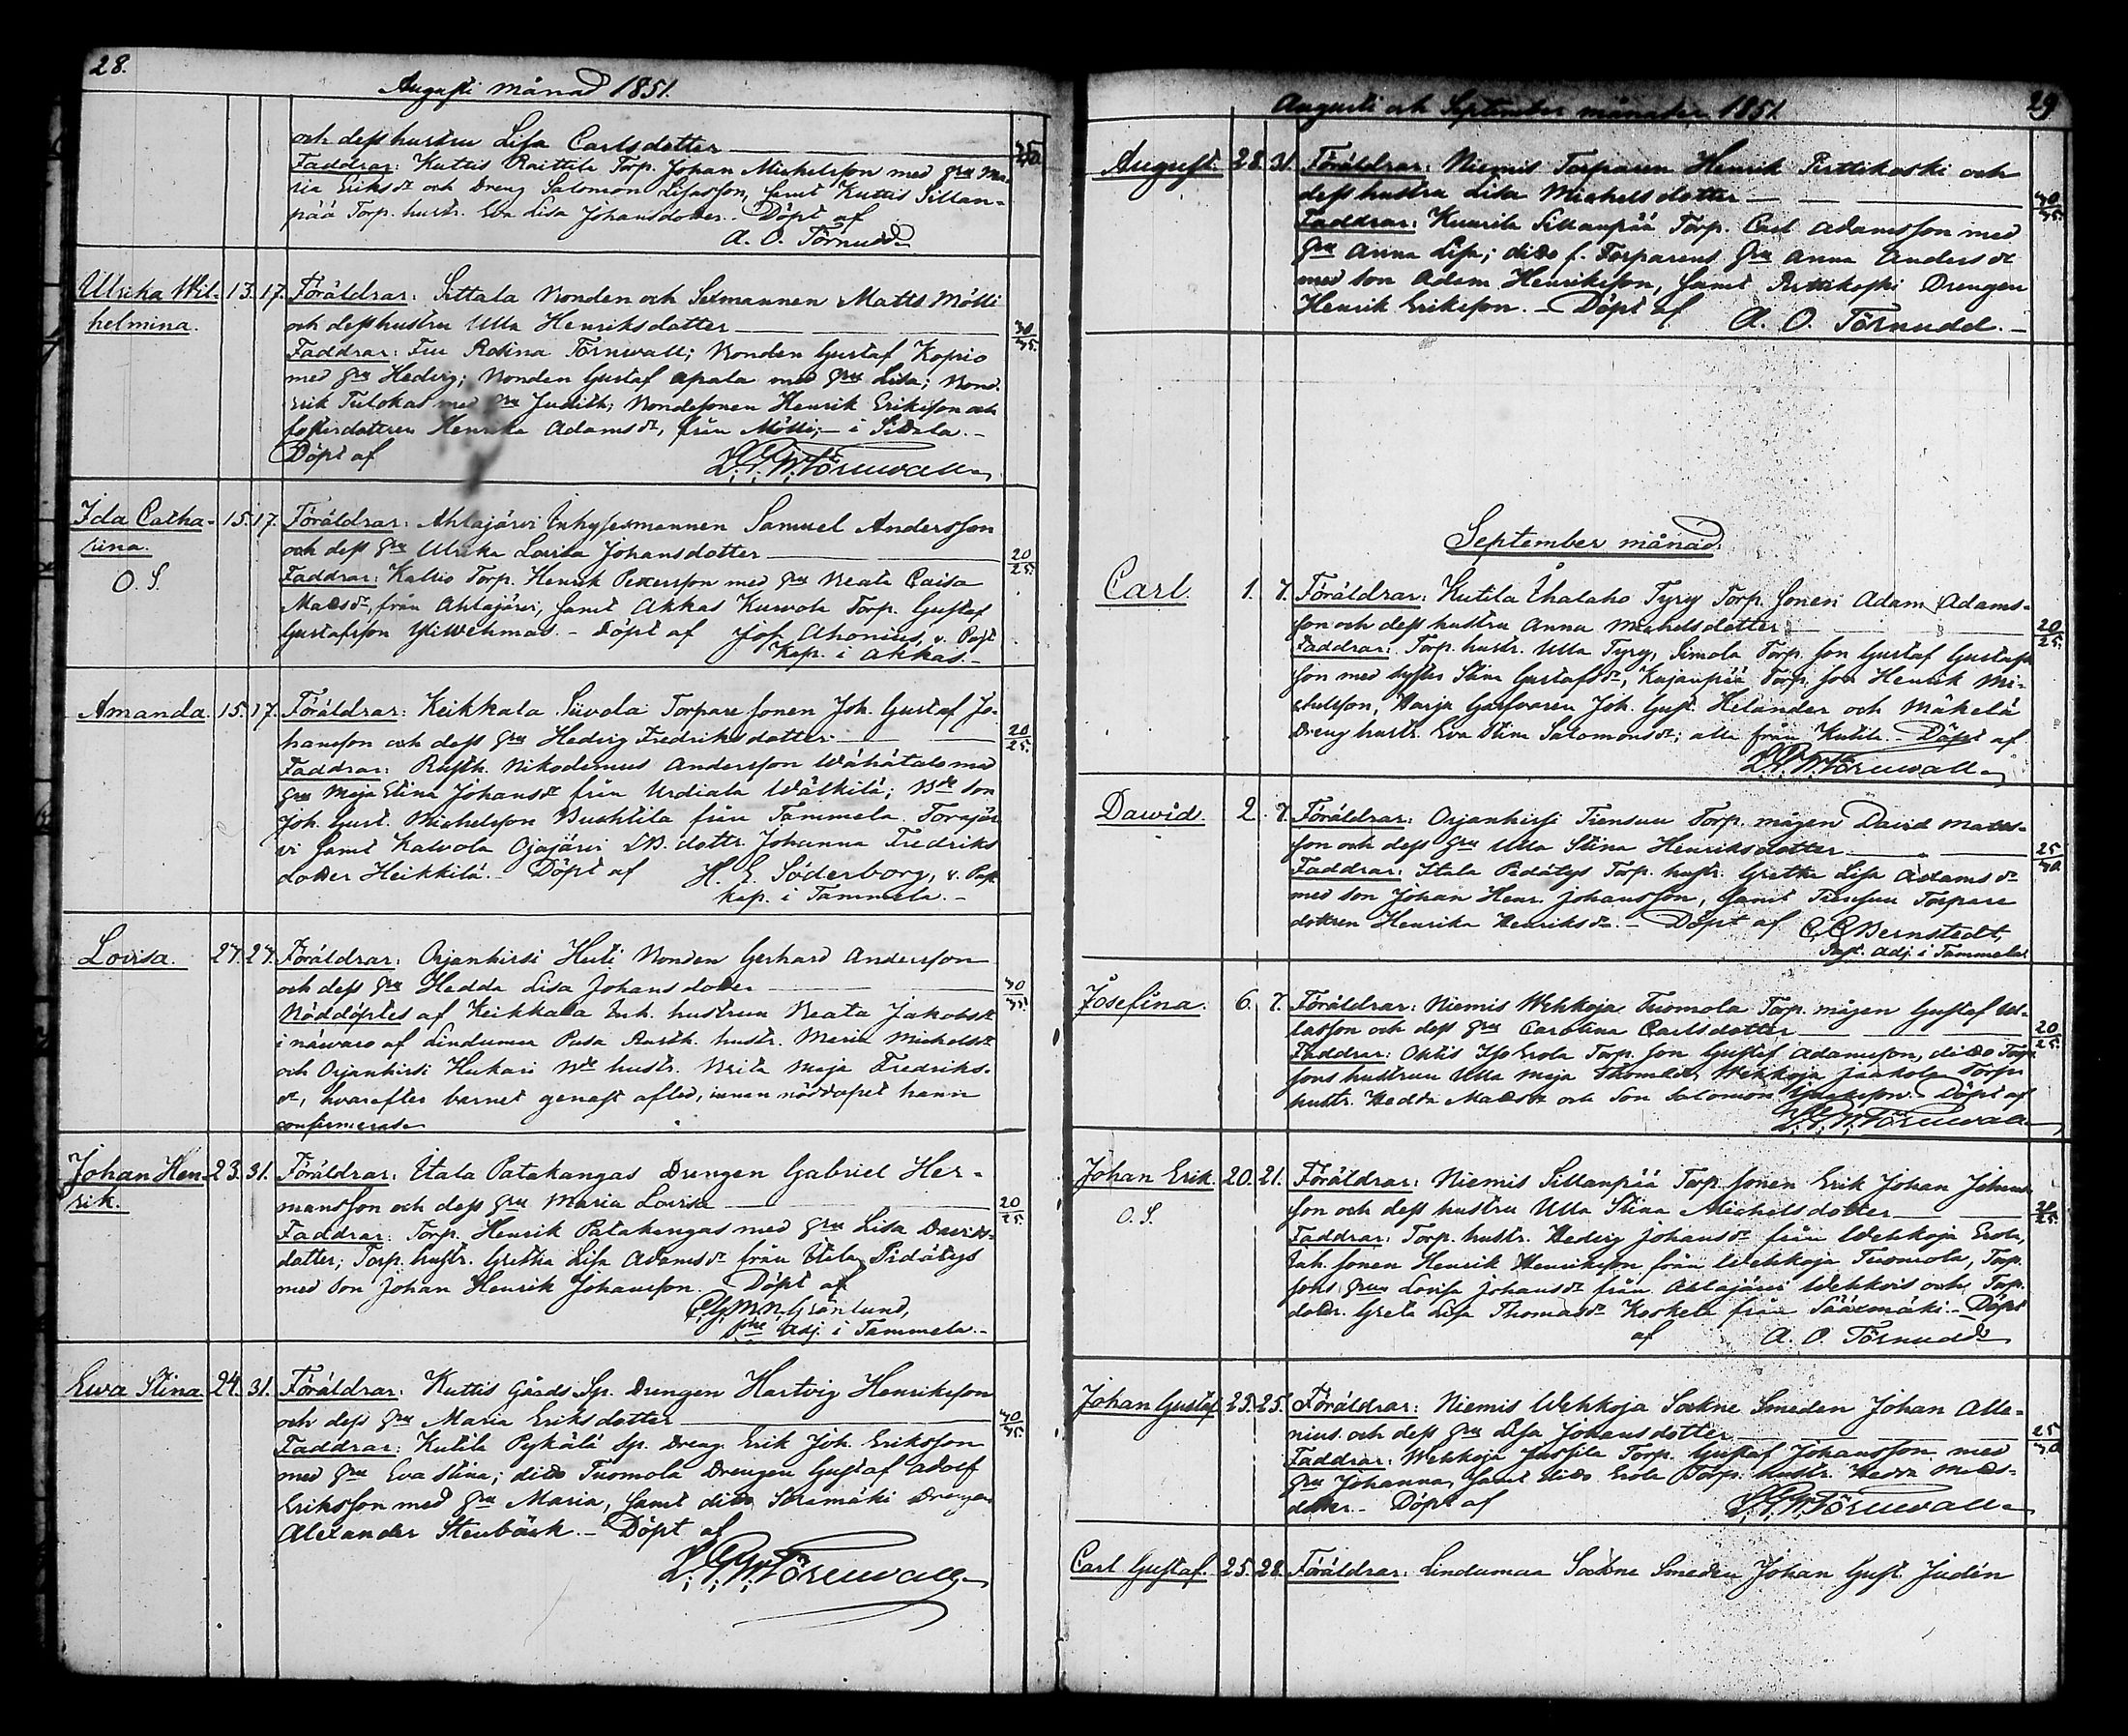 28.
Augusti månad 1851.
och dess hustru Lisa Carlsdotter
Faddrar: Kuttis Raittila Torp. Johan Michelsson med hru Ma-
ria Eriksdr och Dreng Salomon Esaiasson, samt Kuttis Sillan-
pää Torp. hustr. Eva Lisa Johansdotter. Döpt af
A. O. Törnudd
Ulrika Wil- 13. 17. Föräldrar: Sittala Bonden och Sexmannen Matts Mölli
helmina. och dess hustru Ulla Henriksdotter 40/45.
Faddrar: Fru Rosina Törnwall; Bonden Gustaf Kopio
med hru Hedvig; Bonden Gustaf Apala med hru Lisa; Bond.
Erik Tulokas med hru Judith; Bondesonen Henrik Eriksson och
fosterdottren Henrika Adamsdr, från Mölli, i Sittala.
Döpt af L. G. W. Törnwall
Ida Catha- 15. 17. Föräldrar: Ahlajärvi Inhysesmannen Samuel Andersson
rina. och dess hru Ulrika Lovisa Johansdotter 20/25.
O. S. Faddrar: Kallio Torp. Henrik Pettersson med hru Beata Caisa
Mattsdr, från Ahlajärvi, samt Akkas Kurvola Torp. Gustaf
Gustafsson Yliwehmas. - Döpt af Jos. Ahonius, v. Past
Kap. i Akkas.
Amanda. 15. 17. Föräldrar: Keikkala Siivola Torpare sonen Joh. Gustaf Jo-
hansson och dess hru Hedvig Fredriksdotter 20/25.
Faddrar: Rusth. Nikodemus Andersson Wähätalo med
hru Maja Stina Johansdr från Urdiala Wälkilä; Bde son
Joh. Gust. Michelsson Bushtila från Tammela Torajär
vi samt Kalvola Ojajärvi LB. dottr. Johanna Fredriks
dotter Heikkilä. Döpt af H. E. Söderborg, v. Past
kap. i Tammela.
Lovisa. 27. 27. Föräldrar: Orjanhirsi Huti Bonden Gerhard Andersson
och dess hru Hedda Lisa Johansdotter 40/45.
Nöddöptes af Keikkala Inh. hustrun Beata Jakobsdr
i närvaro af Lindumaa Pusa Rusth. hustr. Maria Michelsdr
och Orjanhirsi Hukari Bde hustr. Brita Maja Fredriks-
dr, hvarefter barnet genast afled, innan nöddopet hann
confirmeras.
Johan Hen- 23. 31. Föräldrar: Itala Patakangas Drengen Gabriel Her-
rik. mansson och dess hru Maria Lovisa 20/25.
Faddrar: Torp. Henrik Patakangas med hru Lisa Davids-
dotter; Torp. hustr. Gretha Lisa Adamsdr från Itala Pidätys
med son Johan Henrik Johansson. Döpt af
Grönlund,
adj. i Tammela.
Ewa Stina. 24. 31. Föräldrar: Kuttis Gårds Sp. Drengen Hartvig Henriksson
och dess hru Maria Eriksdotter 40/45.
Faddrar: Kutila Pykälä Sp. Dreng. Erik Joh. Eriksson
med hru Eva Stina; dito Tuomola Drengen Gustaf Adolf
Eriksson med hru Maria, samt dito Soramäki Drengen
Alexander Stenbäck. - Döpt af
L. G. W. Törnwall
29
Augusti och September månader 1851.
August. 28. 31. Föräldrar: Niemis Torparen Henrik Pirttikoski och
dess hustru Lisa Michelsdotter 40/45.
Faddrar: Kuurila Sillanpää Torp. Carl Adamsson med
hru Anna Lisa; dito f. Torparens hru Anna Andersdr
med son Adam Henriksson, samt Pirttikoski Drengen
Henrik Eriksson. - Döpt af A. O. Törnudd.
September månad.
Carl. 1. 7. Föräldrar: Kutila Ihalaho Tyry Torp. sonen Adam Adams-
son och dess hustru Anna Michelsdotter 20/25.
Faddrar: Torp. hustr. Ulla Tyry, Simola Torp. son Gustaf Gustafs
son med syster Stina Gustafsdr, Kujanpää Torp. son Henrik Mi-
chelsson, Harja Garfvaren Joh. Gust. Helander och Mäkelä
Dreng hustr. Eva Stina Salomonsdr; alla från Kutila. Döpt af
L. G. W. Törnwall
Dawid. 2. 7. Föräldrar: Orjanhirsi Tiensuu Torp. mågen David Matts-
son och dess hru Ulla Stina Henriksdotter 25/30.
Faddrar: Itala Pidätys Torp. hustr. Gretha Lisa Adamsdr
med son Johan Henr. Johansson, samt Tiensuu Torpare
dottren Henrika Henriksdr. - Döpt af C. C. Bernstedt,
Past. adj. i Tammela.
Josefina. 6. 7. Föräldrar: Niemis Wehkoja Tuomola Torp. mågen Gustaf
lasson och dess hru Carolina Carlsdotter 20/25.
Faddrar: Oktis Iso Erola Torp. son Gustaf Adamsson, dito Torp.
sons hustrun Ulla Maja Thomasdr, Wehkoja Jaakola Torp.
hustr. Hedda Mattsdr och son Salomon. Döpt af
L. G. W. Törnwall
Johan Erik. 20. 21. Föräldrar: Niemis Sillanpää Torp. sonen Erik Johan Johans
O. S. son och dess hustru Ulla Stina Michelsdotter 20/25.
Faddrar: Torp. hustr. Hedvig Johansdr från Wehkoja Erola,
Inh. sonen Henrik Henriksson från Wehkoja Tuomola, Torp.
sons hru Lovisa Johansdr från Ahlajärvi Wehkois och Torp.
dottr. Greta Lisa Thomasdr Koskela från Sääxmäki. - Döpt
af A. O. Törnudd
Johan Gustaf. 23. 25. Föräldrar: Niemis Wehkoja Sockne Smeden Johan Alle-
nius och dess hru Lisa Johansdotter 25/30
Faddrar: Wehkoja Jussila Torp. Gustaf Johansson med
hru Johanna, samt dito Erola Torp. hustr. Hedda Matts-
dotter. - Döpt af L. G. W. Törnwall
Carl Gustaf. 25. 28. Föräldrar: Lindumaa Sockne Smeden Johan Gust. Judén